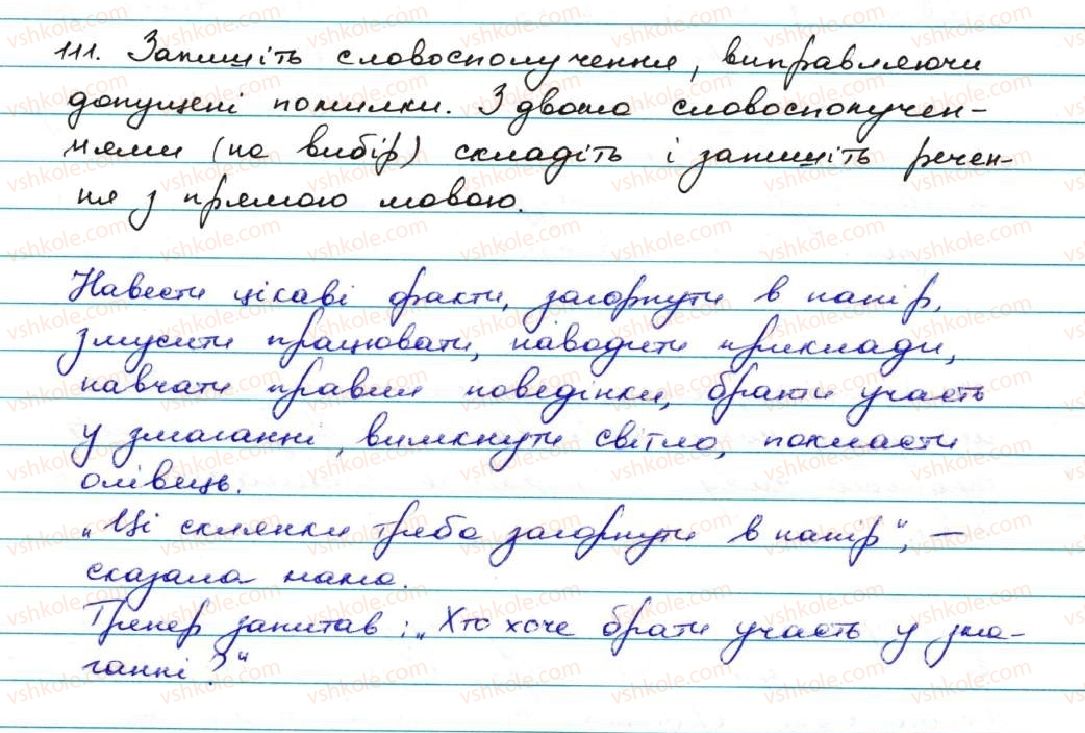 111. Запишіть словосполучення, виправляючи
допущені помилки. З двома словосполучен-
нями (на вибір) складіть і запишіть речен-
ня з прямою мовою.
Навести цікаві факти, загорнути в папір,
змусити працювати, наводити приклади,
навчати правил поведінки, брати участь
у змаганні, вимкнути світло, покласти
олівець.
„Ці склянки треба загорнути в папір", –
сказала мама.
Тренер запитав: „Хто хоче брати участь у зма-
ганні?"